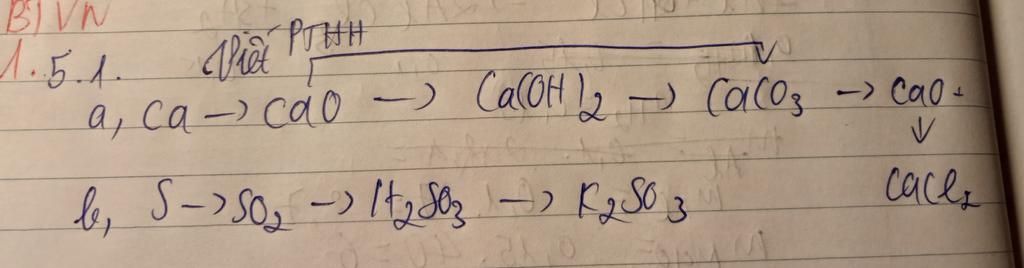 B)VN
1.5.1. Viết PTHH
a, Ca → CaO → Ca(OH)2 → CaCO3 → CaO
↓
CaCl2
b, S → SO2 → H2SO3 → K2SO3